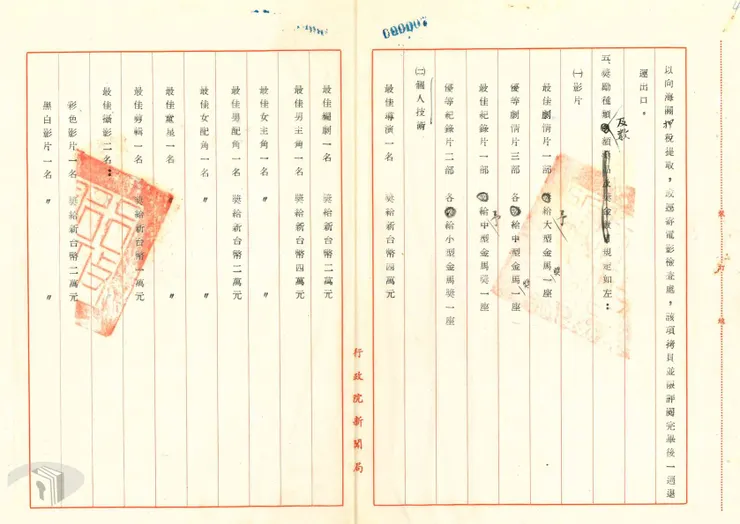 裝訂線
以向海關押稅提取，或運寄電影檢查處，該項拷貝並限評閱完畢後一週退
運出口。
五、獎勵種類及數額規定如左：
㈠影片
最佳劇情片一部 給予大型金馬獎一座
優等劇情片三部 各給中型金馬獎一座
最佳紀錄片一部 給予中型金馬獎一座
優等紀錄片二部 各給小型金馬獎一座
㈡個人技術
最佳導演一名 獎給新台幣四萬元
行政院新聞局
最佳編劇一名 獎給新台幣二萬元
最佳男主角一名 獎給新台幣四萬元
最佳女主角一名 〃
最佳男配角一名 獎給新台幣二萬元
最佳女配角一名 〃
最佳童星一名 〃 〃
最佳剪輯一名 獎給新台幣一萬元
最佳攝影二名：
彩色影片一名 獎給新台幣二萬元
黑白影片一名 〃 〃